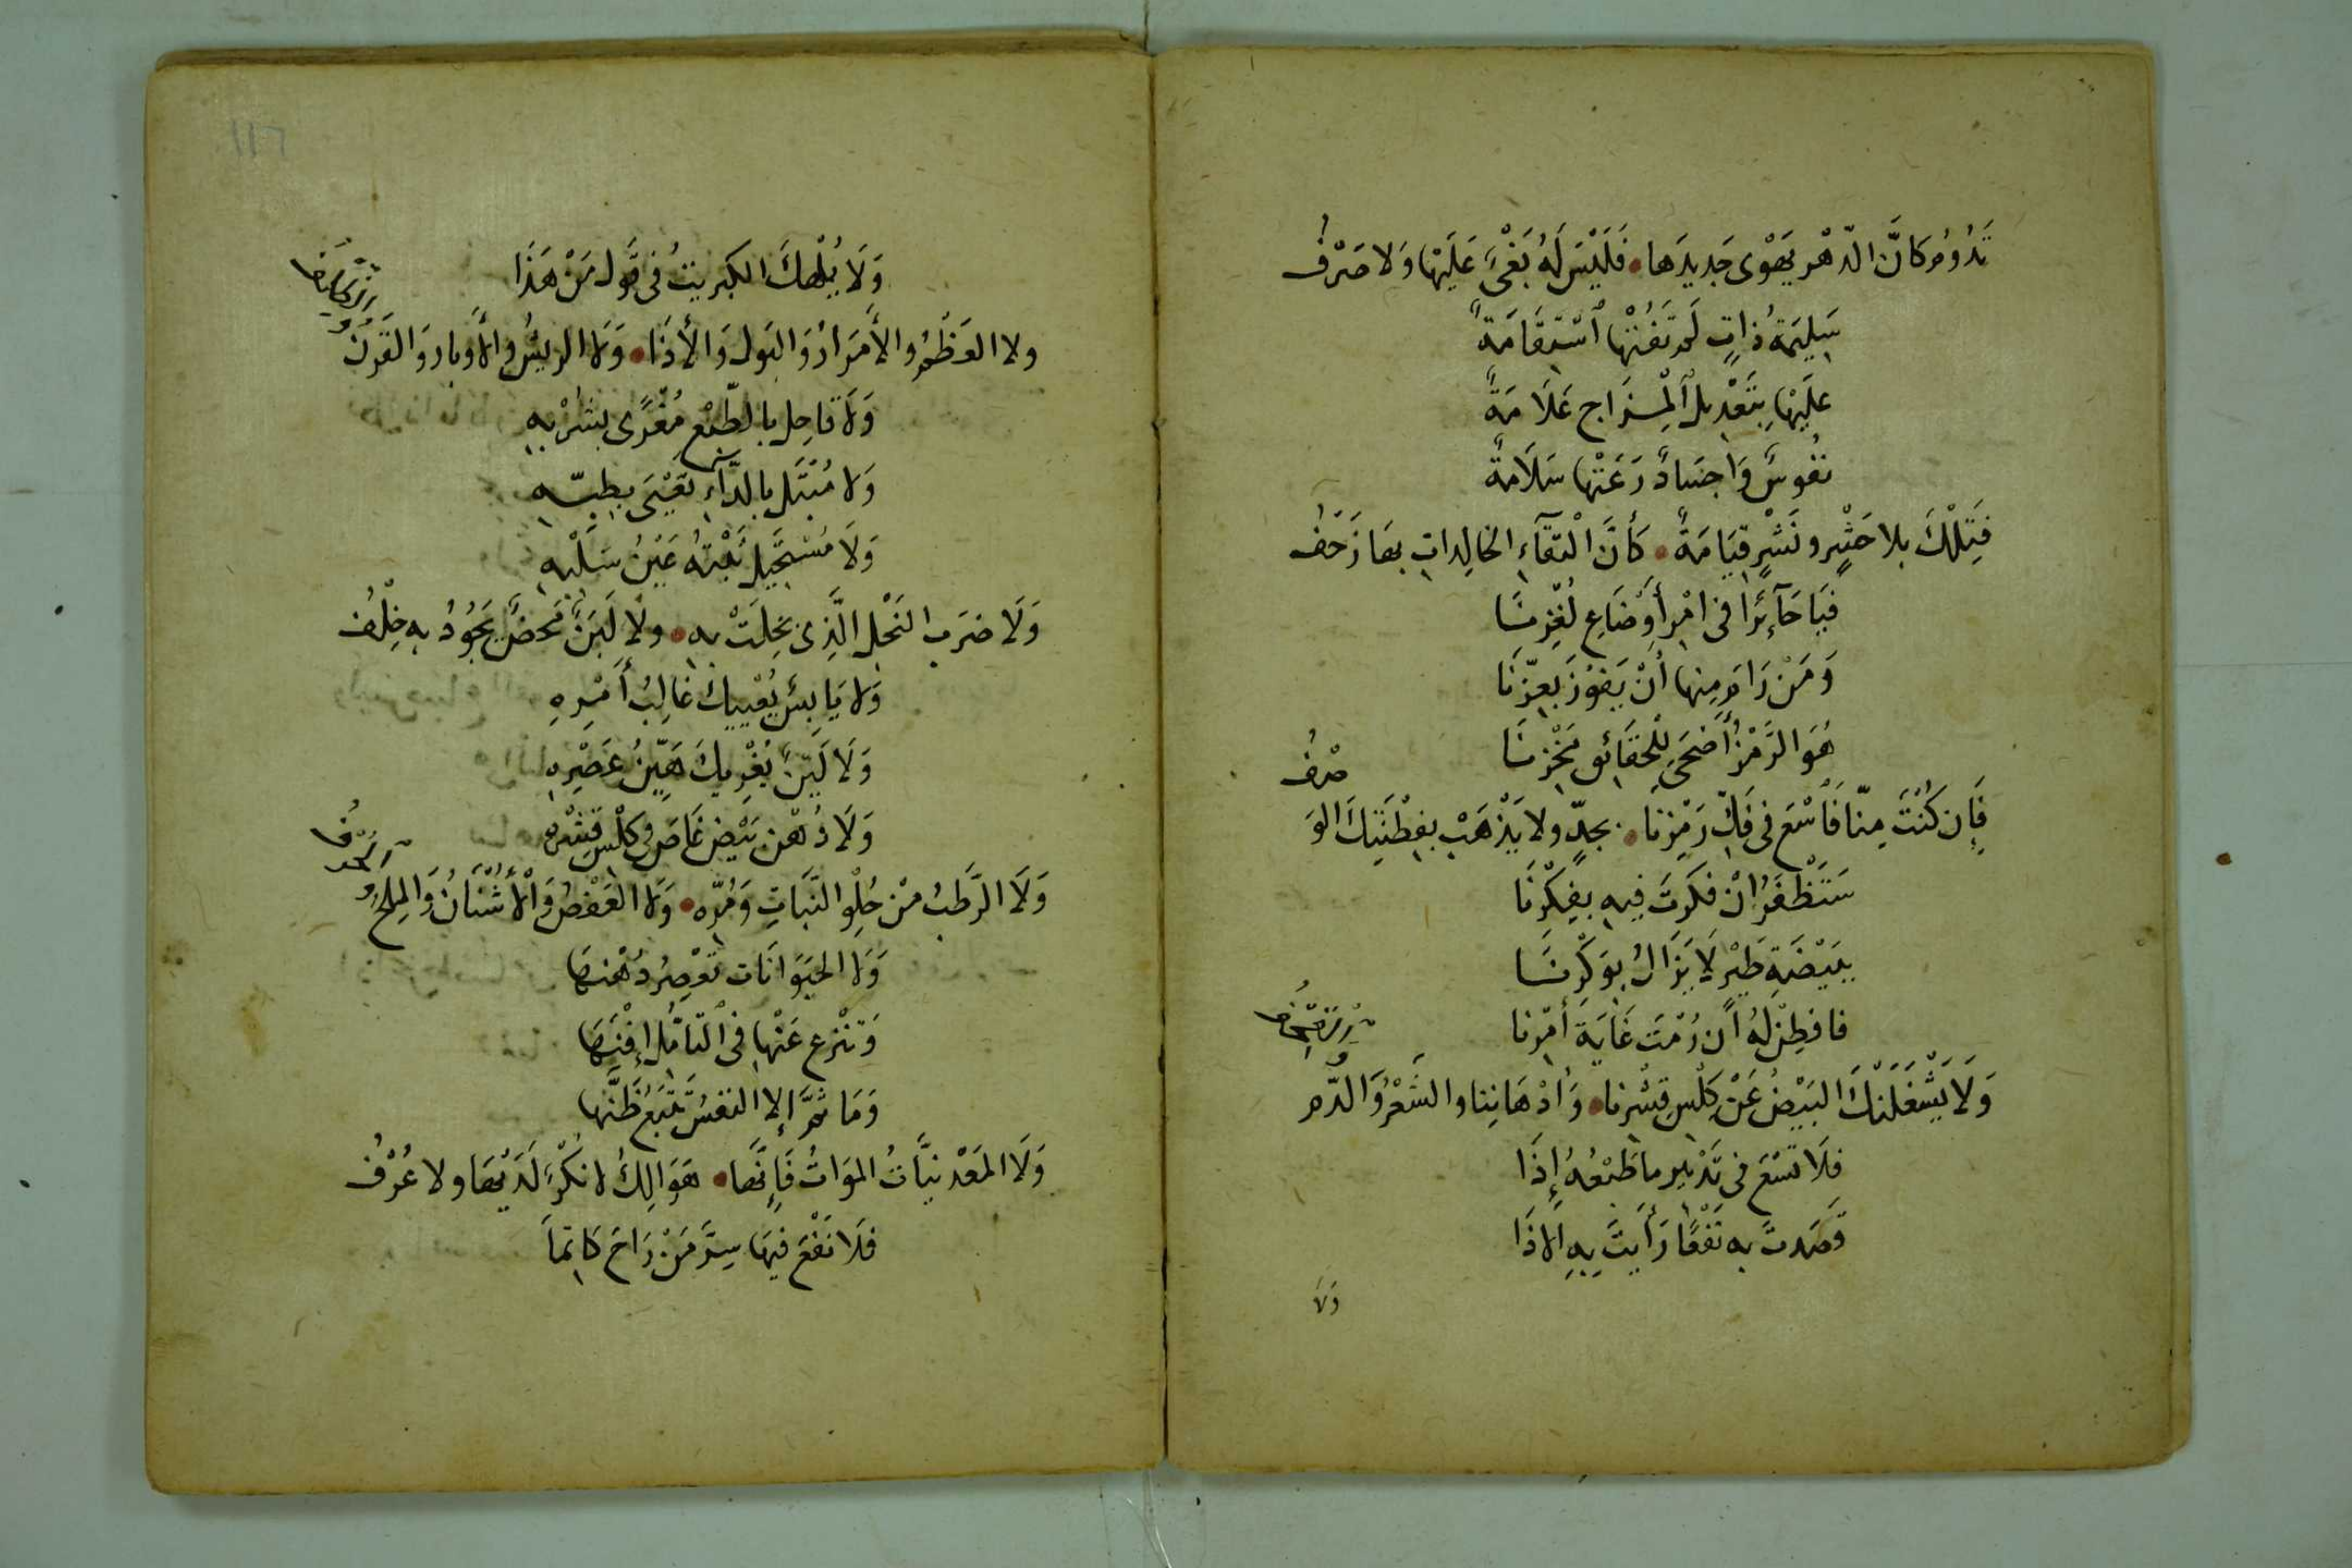 تَدُومُ كَانَّ الدّهْر يَهْوى جَدِيدَها • فَلَيْسَ لَهُ بَغْىٌ عَلَيْها وَلا صَرْفُ
سَلِيمَةُ ذاتٍ لَم تَفُتْها ٱسْتِقَامَةٌ
عَلَيْها بِتَعْدِيل ٱلْمِزَاج عَلَامَةٌ
نفُوسٌ وَاجسَادٌ رَعَتْها سَلَامَةٌ
فَتِلْكَ بلا حَشْرٍ ونَشْرٍ قِيَامَةٌ • كَأنَّ الْتقَآءِ الخالِداتِ بهَا زَحفُ
فَيَا حَآئِرًا فى امْرِ أَوْضَاعِ لُغْزِنَا
وَمَنْ رَامَ مِنها أنْ يَفوُزَ بعِزّنَا
هُوَ الرَّمْزُ أَضحَى لِلْحَقَائِقِ مَخْزِنَا
صْرفُ
فَإِن كُنْتَ مِنّا فَاسْعَ فى فَكّ رَمْزِنا • بجدٍّ ولا يَذْهَبْ بفِطْنَتِكَ الوَ
سَتَظْفَرُ انْ فكرتَ فِيهِ بفِكْرِنَا
بِبَيْضَةِ طَيْرٍ لَا يَزَالُ بوَكْرِنَا
فافطِنْ لهُ ان رُمْتَ غَايَةَ أَمْرِنا
وَلَا يَشْغَلَنْكَ البَيْضُ عَنْ كِلْسِ قِشْرِنا • وَأدْهَانِنا والشَعْرُ وَالدّم
فلَا تَسْعَ فى تَدْبِير ما طَبْعُهُ إِذَا
قَصَدتَ به نَفْعًا رَأَيتَ بِهِ الاذَا
وَلَا
١١٦
وَلَا يُلْهِكَ الكبريتُ فى قول مَنْ هَذَا
ولا العَظْمُ والأَمرَارُ وَالبَول وَالأذَا • وَلا الريشُ والأوبار وَالقَرنُ
وَلَا قاحِل بالطّبْع مُغْرًى بشرْبِهِ
وَلا مُبْتَل بالدَّآءِ تعْيَى بطِبّهِ
وَلَا مُسْتحَيل بَغْتَهُ عَيْنُ سَلْبِهِ
وَلَا ضرَب النَحْل الَّذِى بَخِلَتْ به • ولا لَبَنٌ مَحضٌ يَجُودُ به خِلْفُ
وَلا يَابِسٌ يُعْيِيكَ غَالِبُ أَمْرِهِ
وَلَا لَيّنٌ يُغْرِيكَ هَيّنُ عَصْرِهِ
وَلَا دُهْن بَيْضٍ غَاصَ فى كِلْسِ قِشْرِهِ
وَلَا الرَّطبُ مْن حُلْوِ النَّبَاتِ وَمُرّه • وَلا العَفْصُ وَالأشْنَانُ وَالمِلحُ
وَلا الحيَوَانَات تعْصِرُ دُهْنها
وَتنْزع عَنْها فى ٱلتامُّلِ إفْنَها
وَمَا ثمَّ إلا النفسُ تتْبَعُ ظَنَّها
وَلَا المَعْدنيَّاتُ المَوَاتُ فَإِنَّها • هَوَالِكُ لا نكْرٌ لَدَيْهَا ولا عُرْفُ
فلَا نَفْعَ فِيهَا سِرَّ مَنْ رَاحَ كَاتِمًا